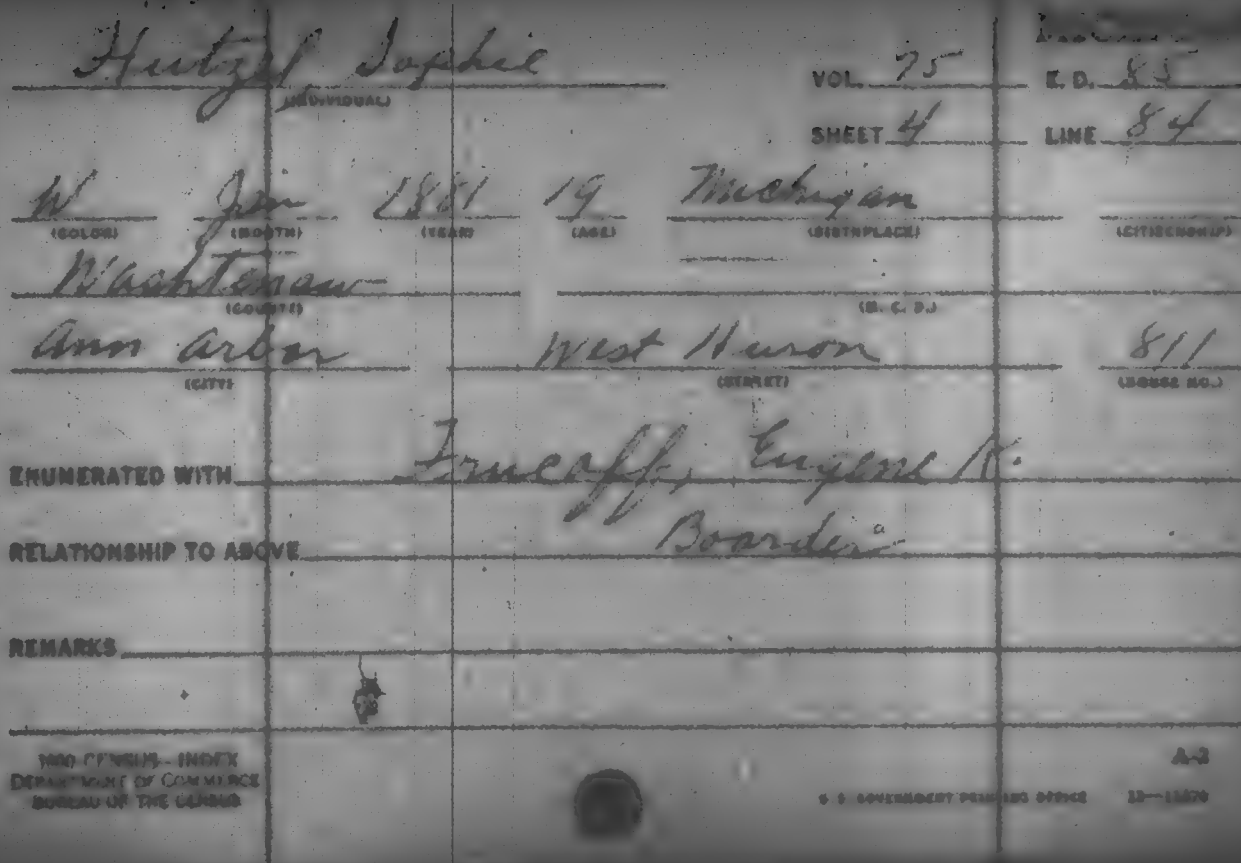 Hutzel Sophie
(INDIVIDUAL)
VOL. 75 E. D. 85
SHEET 4 LINE 84
W Jan 1881 19 Michigan
(COLOR) (MONTH) (YEAR) (AGE) (BIRTHPLACE) (CITIZENSHIP)
Washtenaw
(COUNTY) (M. C. D.)
Ann Arbor West Huron 811
(CITY) (STREET) (HOUSE NO.)
ENUMERATED WITH Frueauff, Eugene K.
RELATIONSHIP TO ABOVE Boarder
REMARKS
1900 CENSUS—INDEX
DEPARTMENT OF COMMERCE
BUREAU OF THE CENSUS
A-3
U. S. GOVERNMENT PRINTING OFFICE